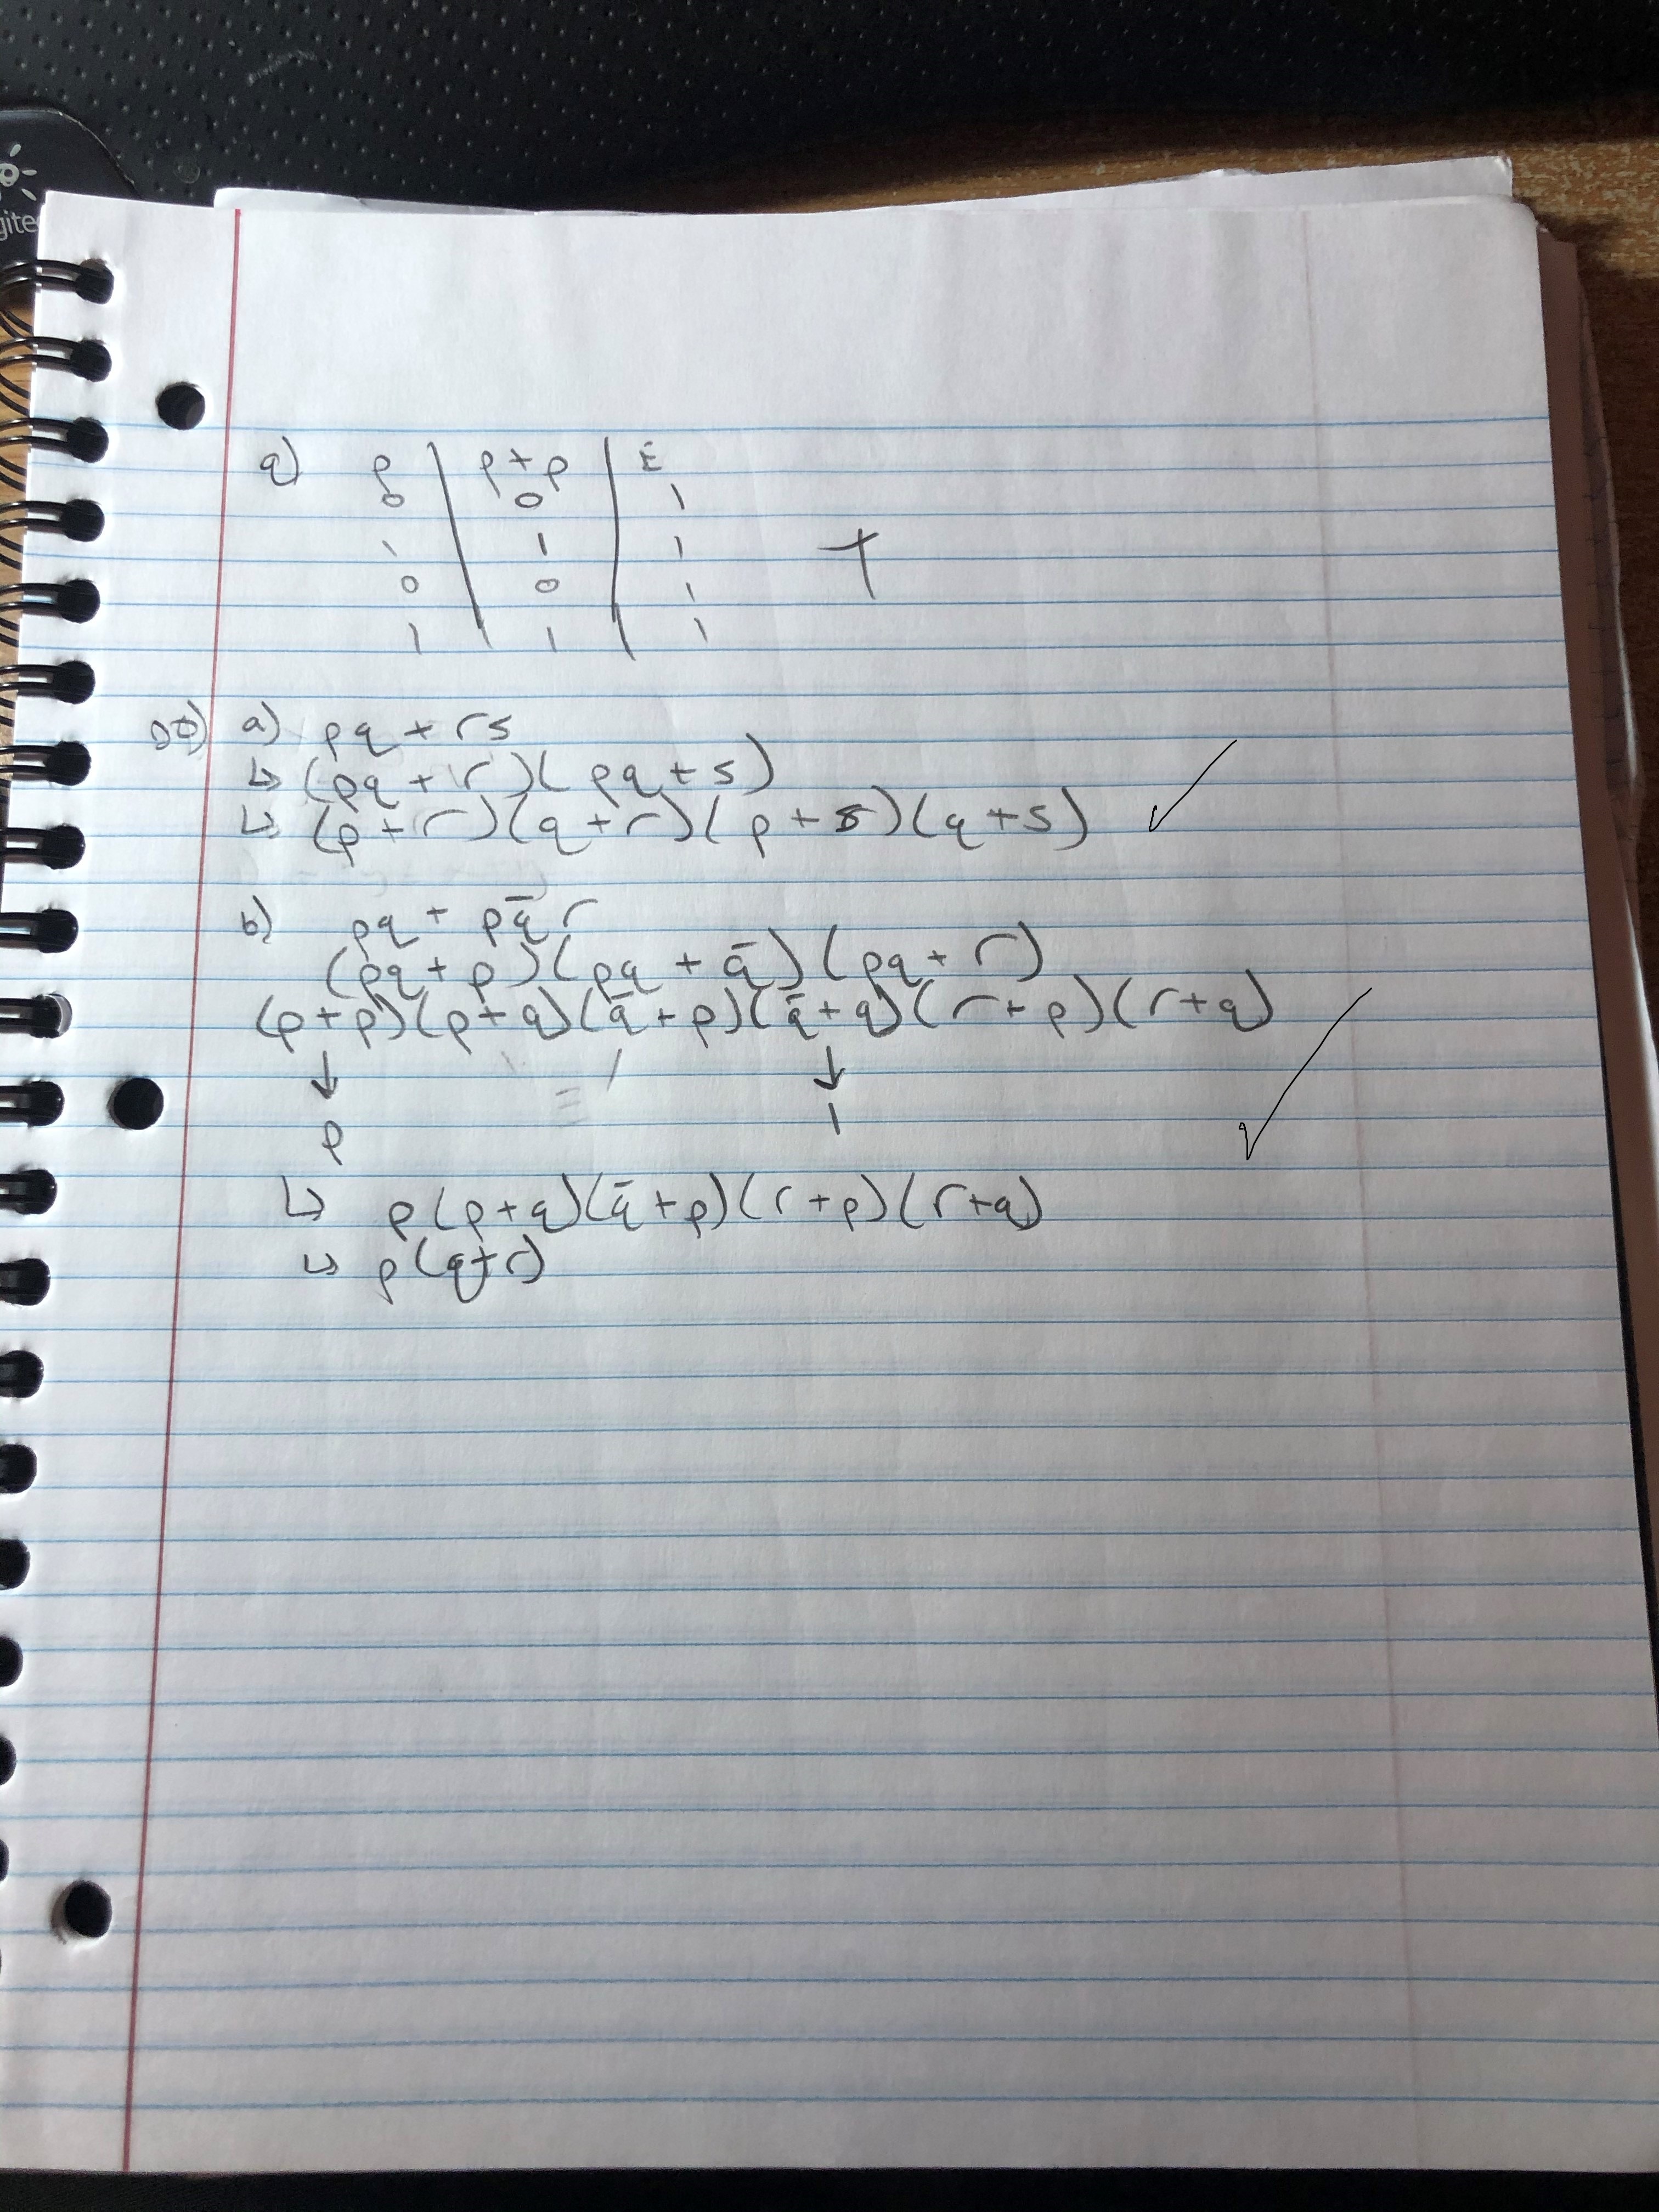 gitec
q) p | p+p | E
0 | 0 | 1
1 | 1 | 1 T
0 | 0 | 1
1 | 1 | 1
a) pq + rs
↳ (pq + r)(pq + s)
↳ (p + r)(q + r)(p + s)(q + s) ✓
b) pq + pq̄r
(pq + p)(pq + q̄)(pq + r)
(p+p)(p+q)(q̄+p)(q̄+q)(r+p)(r+q) ✓
↓ = 1 ↓
p 1
↳ p(p+q)(q̄+p)(r+p)(r+q)
↳ p(q+r)